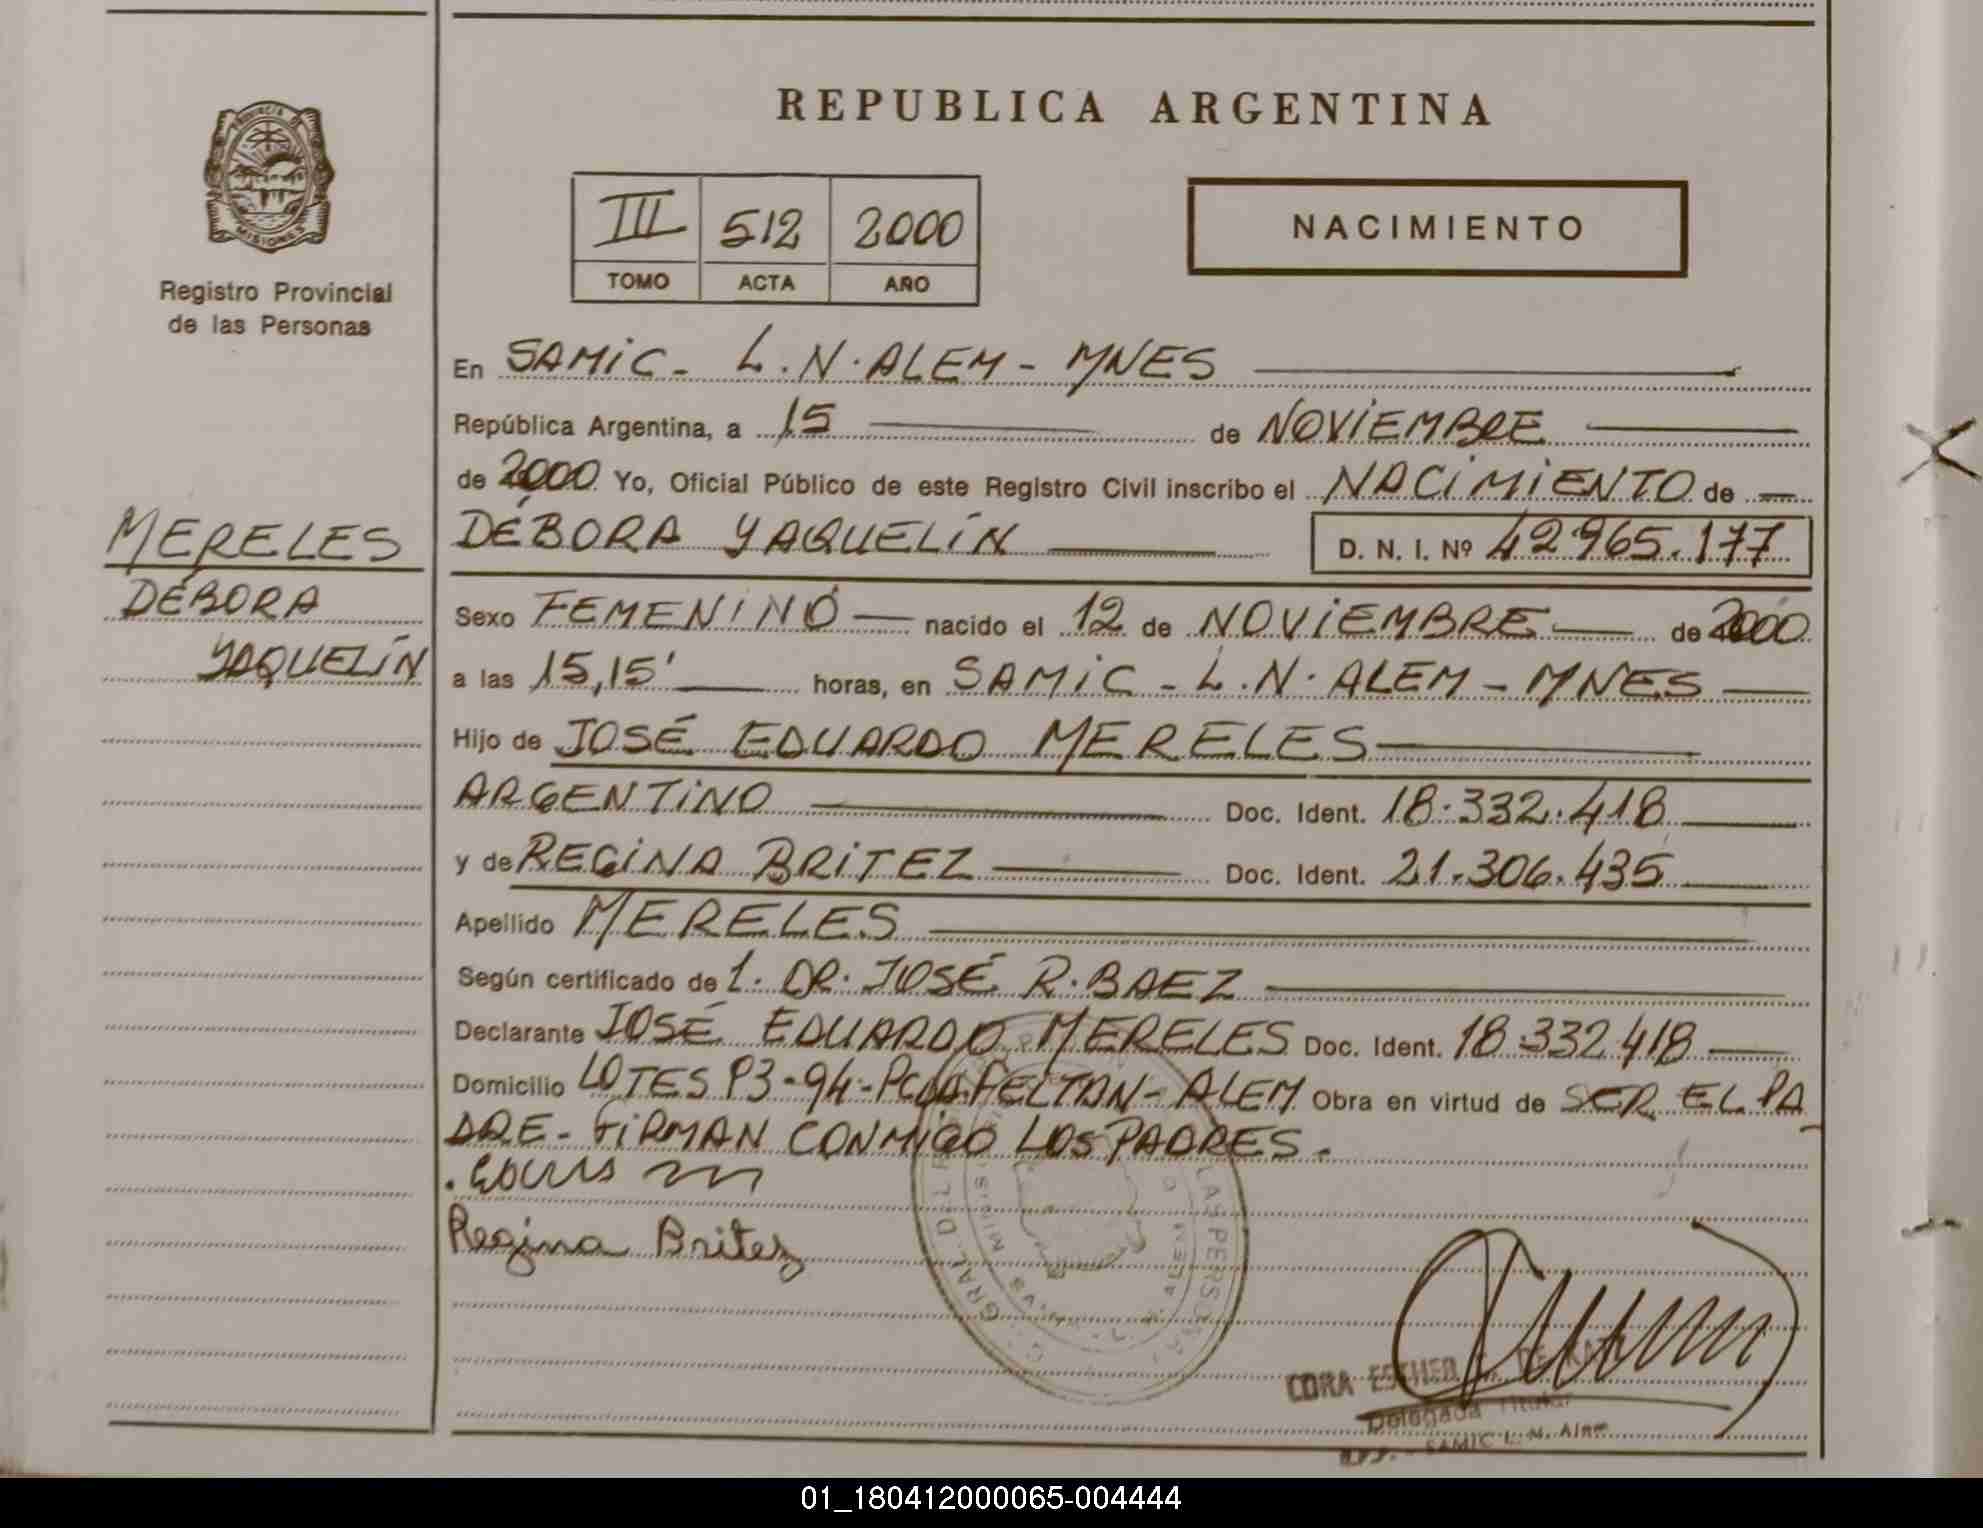 REPUBLICA ARGENTINA
PROVINCIA DE
MISIONES
Registro Provincial
de las Personas
III 512 2000
TOMO ACTA AÑO
NACIMIENTO
En SAMIC - L.N.ALEM - MNES
República Argentina, a 15 de NOVIEMBRE
de 2000 Yo, Oficial Público de este Registro Civil inscribo el NACIMIENTO de
DÉBORA YAQUELÍN D. N. I. Nº 42965.177
MERELES
DÉBORA
YAQUELÍN
Sexo FEMENINO nacido el 12 de NOVIEMBRE de 2000
a las 15,15' horas, en SAMIC - L.N. ALEM - MNES
Hijo de JOSÉ EDUARDO MERELES
ARGENTINO Doc. Ident. 18.332.418
y de REGINA BRITEZ Doc. Ident. 21.306.435
Apellido MERELES
Según certificado de 1. DR. JOSÉ R. BAEZ
Declarante JOSÉ EDUARDO MERELES Doc. Ident. 18.332.418
Domicilio LOTES P3-94- FELTAN - ALEM Obra en virtud de SER EL PA
DRE - FIRMAN CONMIGO LOS PADRES.
Regina Britez
CORA ESTHER DE
Delegada Titular
SAMIC L. N. Alem
01_180412000065-004444